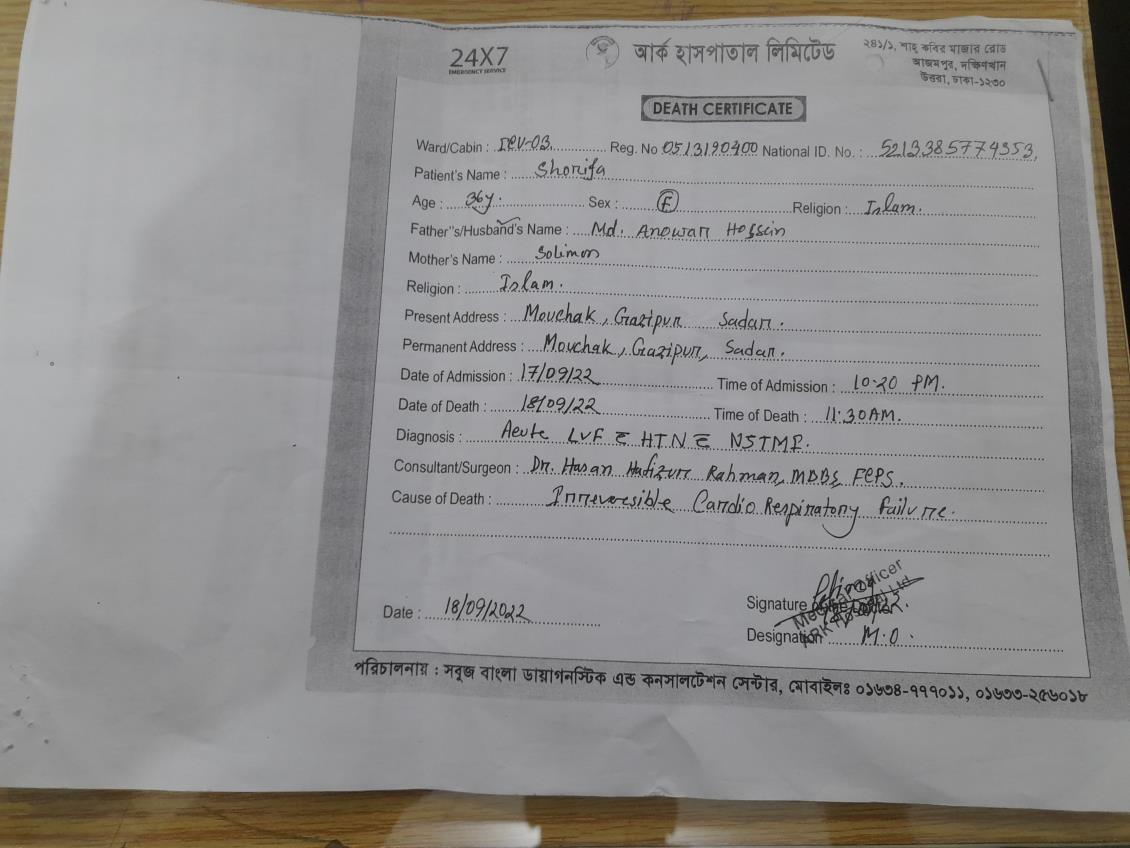 24X7
EMERGENCY SERVICE
আর্ক হাসপাতাল লিমিটেড
২৪১/১, শাহ্ কবির মাজার রোড
আজমপুর, দক্ষিণখান
উত্তরা, ঢাকা-১২৩০
DEATH CERTIFICATE
Ward/Cabin : ICU-03 Reg. No 0513190400 National ID. No. : 5213385774353
Patient's Name : Shorifa
Age : 36y. Sex : F Religion : Islam.
Father"s/Husband's Name : Md. Anowar Hossein
Mother's Name : Solimon
Religion : Islam.
Present Address : Mouchak, Gazipur Sadar.
Permanent Address : Mouchak, Gazipur, Sadar.
Date of Admission : 17/09/22 Time of Admission : 10.20 PM.
Date of Death : 18/09/22 Time of Death : 11:30 AM.
Diagnosis : Acute LVF c̄ HTN c̄ NSTMI.
Consultant/Surgeon : Dr. Hasan Hafizur Rahman, MBBS, FCPS.
Cause of Death : Irreversible Cardio Respiratory failure.
Date : 18/09/2022
Signature
Medical Officer
Designation M.O.
পরিচালনায় : সবুজ বাংলা ডায়াগনস্টিক এন্ড কনসালটেশন সেন্টার, মোবাইলঃ ০১৬৩৪-৭৭৭০১১, ০১৬৩৩-২৫৬০১৮